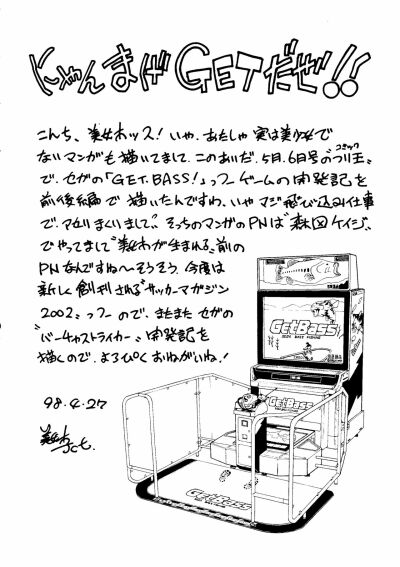 にゃんまげGETだぜ!!
こんち、美女ホッス!いや、あたしゃ実は美少女で
ないマンガも描いてまして、このあいだ、5月、6日号の"コミックつり王"
で、セガの「GET.BASS!」っつーゲームの開発記を
前後編で描いたんですわ、いやマジ飛び込み仕事
で、アセりまくりまして"そっちのマンガのPNは"森図ケイジ"
でやってまして"美女わが生まれる"前の
PNなんですね〜そうそう、今度は
新しく創刊される"サッカーマガジン
2002"っつーので、またまたセガの
"バーチャストライカー"開発記を
描くので、よろぴくおねがいね!
98.4.27
GetBass
SEGA BASS FISHING
GetBass
GetBass